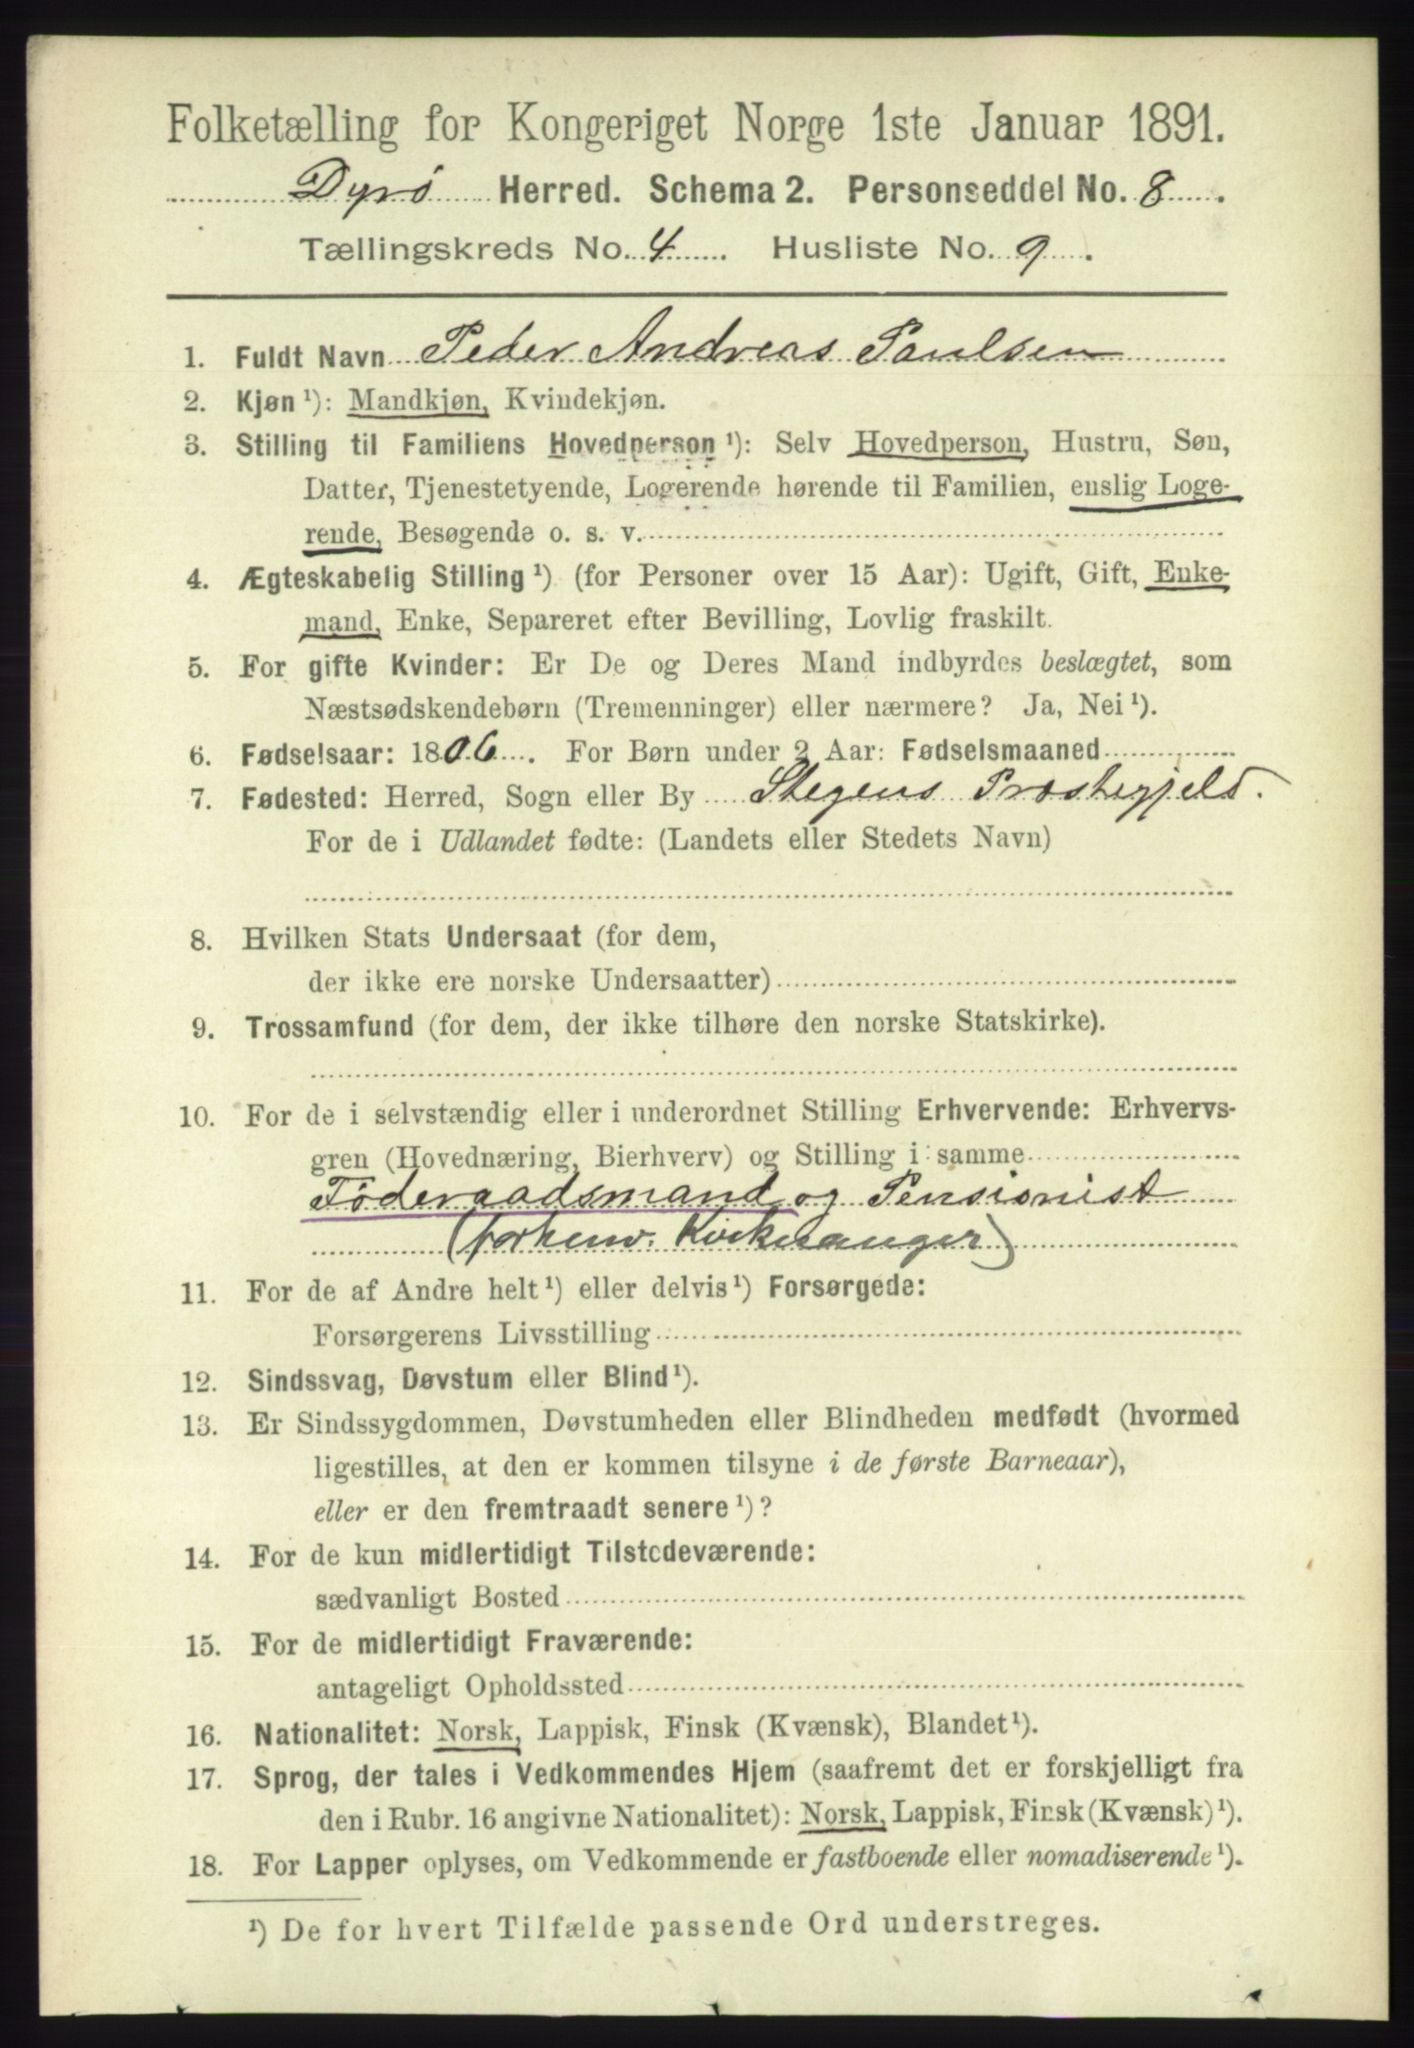 Folketælling for Kongeriget Norge 1ste Januar 1891.
Dyrö Herred. Schema 2. Personseddel No. 8.
Tællingskreds No. 4. Husliste No. 9.
1. Fuldt Navn Peder Andreas Paulsen
2. Kjøn ¹): Mandkjøn, Kvindekjøn.
3. Stilling til Familiens Hovedperson ¹): Selv Hovedperson, Hustru, Søn,
Datter, Tjenestetyende, Logerende hørende til Familien, enslig Loge-
rende, Besøgende o. s. v.
4. Ægteskabelig Stilling ¹) (for Personer over 15 Aar): Ugift, Gift, Enke-
mand, Enke, Separeret efter Bevilling, Lovlig fraskilt.
5. For gifte Kvinder: Er De og Deres Mand indbyrdes beslægtet, som
Næstsødskendebørn (Tremenninger) eller nærmere? Ja, Nei ¹).
6. Fødselsaar: 1806. For Børn under 2 Aar: Fødselsmaaned
7. Fødested: Herred, Sogn eller By Stegens Prostegjeld.
For de i Udlandet fødte: (Landets eller Stedets Navn)
8. Hvilken Stats Undersaat (for dem,
der ikke ere norske Undersaatter)
9. Trossamfund (for dem, der ikke tilhøre den norske Statskirke).
10. For de i selvstændig eller i underordnet Stilling Erhvervende: Erhvervs-
gren (Hovednæring, Bierhverv) og Stilling i samme
Föderaadsmand og Pensionist
(forhenv. Kirkesanger)
11. For de af Andre helt ¹) eller delvis ¹) Forsørgede:
Forsørgerens Livsstilling
12. Sindssvag, Døvstum eller Blind ¹).
13. Er Sindssygdommen, Døvstumheden eller Blindheden medfødt (hvormed
ligestilles, at den er kommen tilsyne i de første Barneaar),
eller er den fremtraadt senere ¹)?
14. For de kun midlertidigt Tilstedeværende:
sædvanligt Bosted
15. For de midlertidigt Fraværende:
antageligt Opholdssted
16. Nationalitet: Norsk, Lappisk, Finsk (Kvænsk), Blandet ¹).
17. Sprog, der tales i Vedkommendes Hjem (saafremt det er forskjelligt fra
den i Rubr. 16 angivne Nationalitet): Norsk, Lappisk, Finsk (Kvænsk) ¹).
18. For Lapper oplyses, om Vedkommende er fastboende eller nomadiserende ¹).
¹) De for hvert Tilfælde passende Ord understreges.